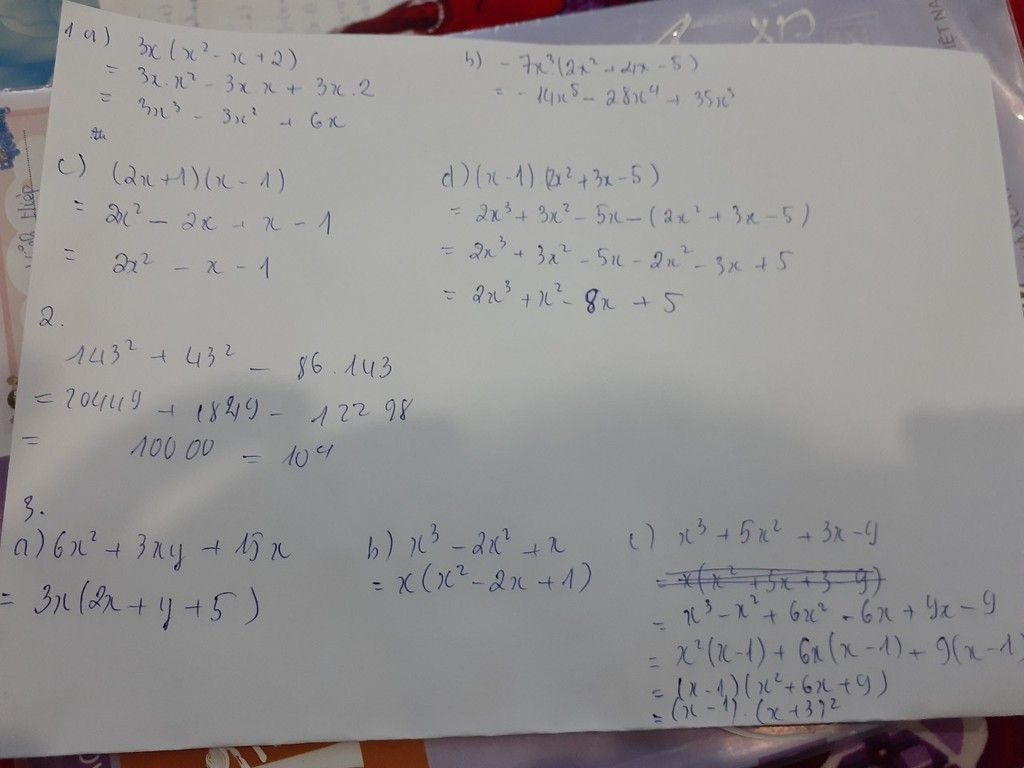 1 a) 3x(x² - x + 2)
= 3x.x² - 3x.x + 3x.2
= 3x³ - 3x² + 6x
b) - 7x³(2x² + 4x - 5)
= - 14x⁵ - 28x⁴ + 35x³
c) (2x+1)(x - 1)
= 2x² - 2x + x - 1
= 2x² - x - 1
d) (x-1)(2x² + 3x - 5)
= 2x³ + 3x² - 5x - (2x² + 3x - 5)
= 2x³ + 3x² - 5x - 2x² - 3x + 5
= 2x³ + x² - 8x + 5
2.
143² + 43² - 86.143
= 20449 + 1849 - 12298
= 10000 = 10⁴
3.
a) 6x² + 3xy + 15x
= 3x(2x + y + 5)
b) x³ - 2x² + x
= x(x² - 2x + 1)
c) x³ + 5x² + 3x - 9
= x(x² + 5x + 3 - 9)
= x³ - x² + 6x² - 6x + 9x - 9
= x²(x-1) + 6x(x-1) + 9(x-1
= (x-1)(x² + 6x + 9)
= (x-1).(x+3)²